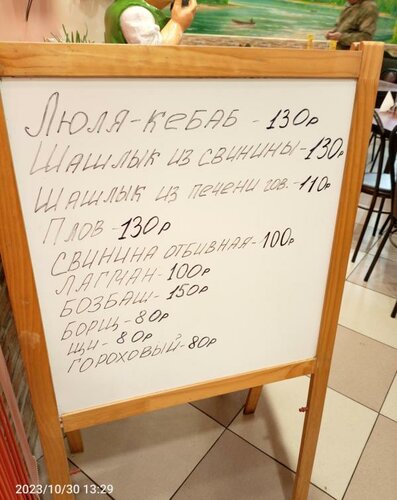 Люля-кебаб - 130р
Шашлык из свинины - 130р
Шашлык из печени гов. - 110р
Плов - 130р
Свинина отбивная - 100р
Лагман - 100р
Бозбаш - 150р
Борщ - 80р
Щи - 80р
Гороховый - 80р
2023/10/30 13:29